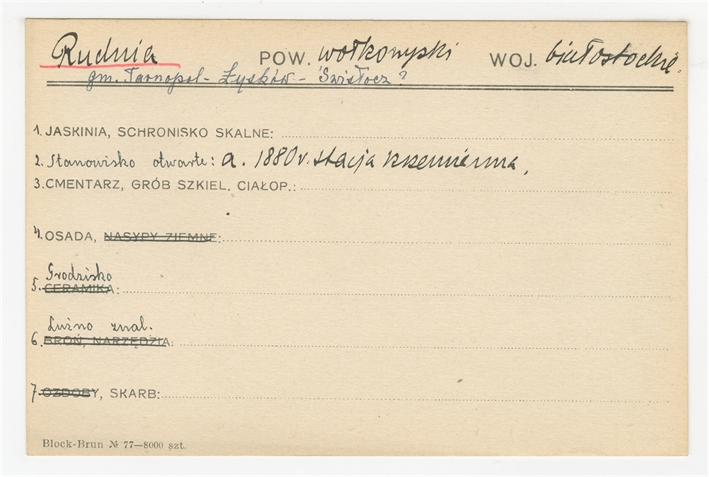 Rudnia POW. wołkowyski WOJ. białostockie.
gm. Tarnopol - Łysków - Świsłocz?
1. JASKINIA, SCHRONISKO SKALNE:
2. Stanowisko otwarte: a. 1880 r. stacja krzemienna,
3. CMENTARZ, GRÓB SZKIEL, CIAŁOP.:
4. OSADA, NASYPY ZIEMNE:
Grodzisko
5. CERAMIKA:
Luźno znal.
6. BROŃ, NARZĘDZIA:
7. OZDOBY, SKARB:
Block-Brun № 77—8000 szt.